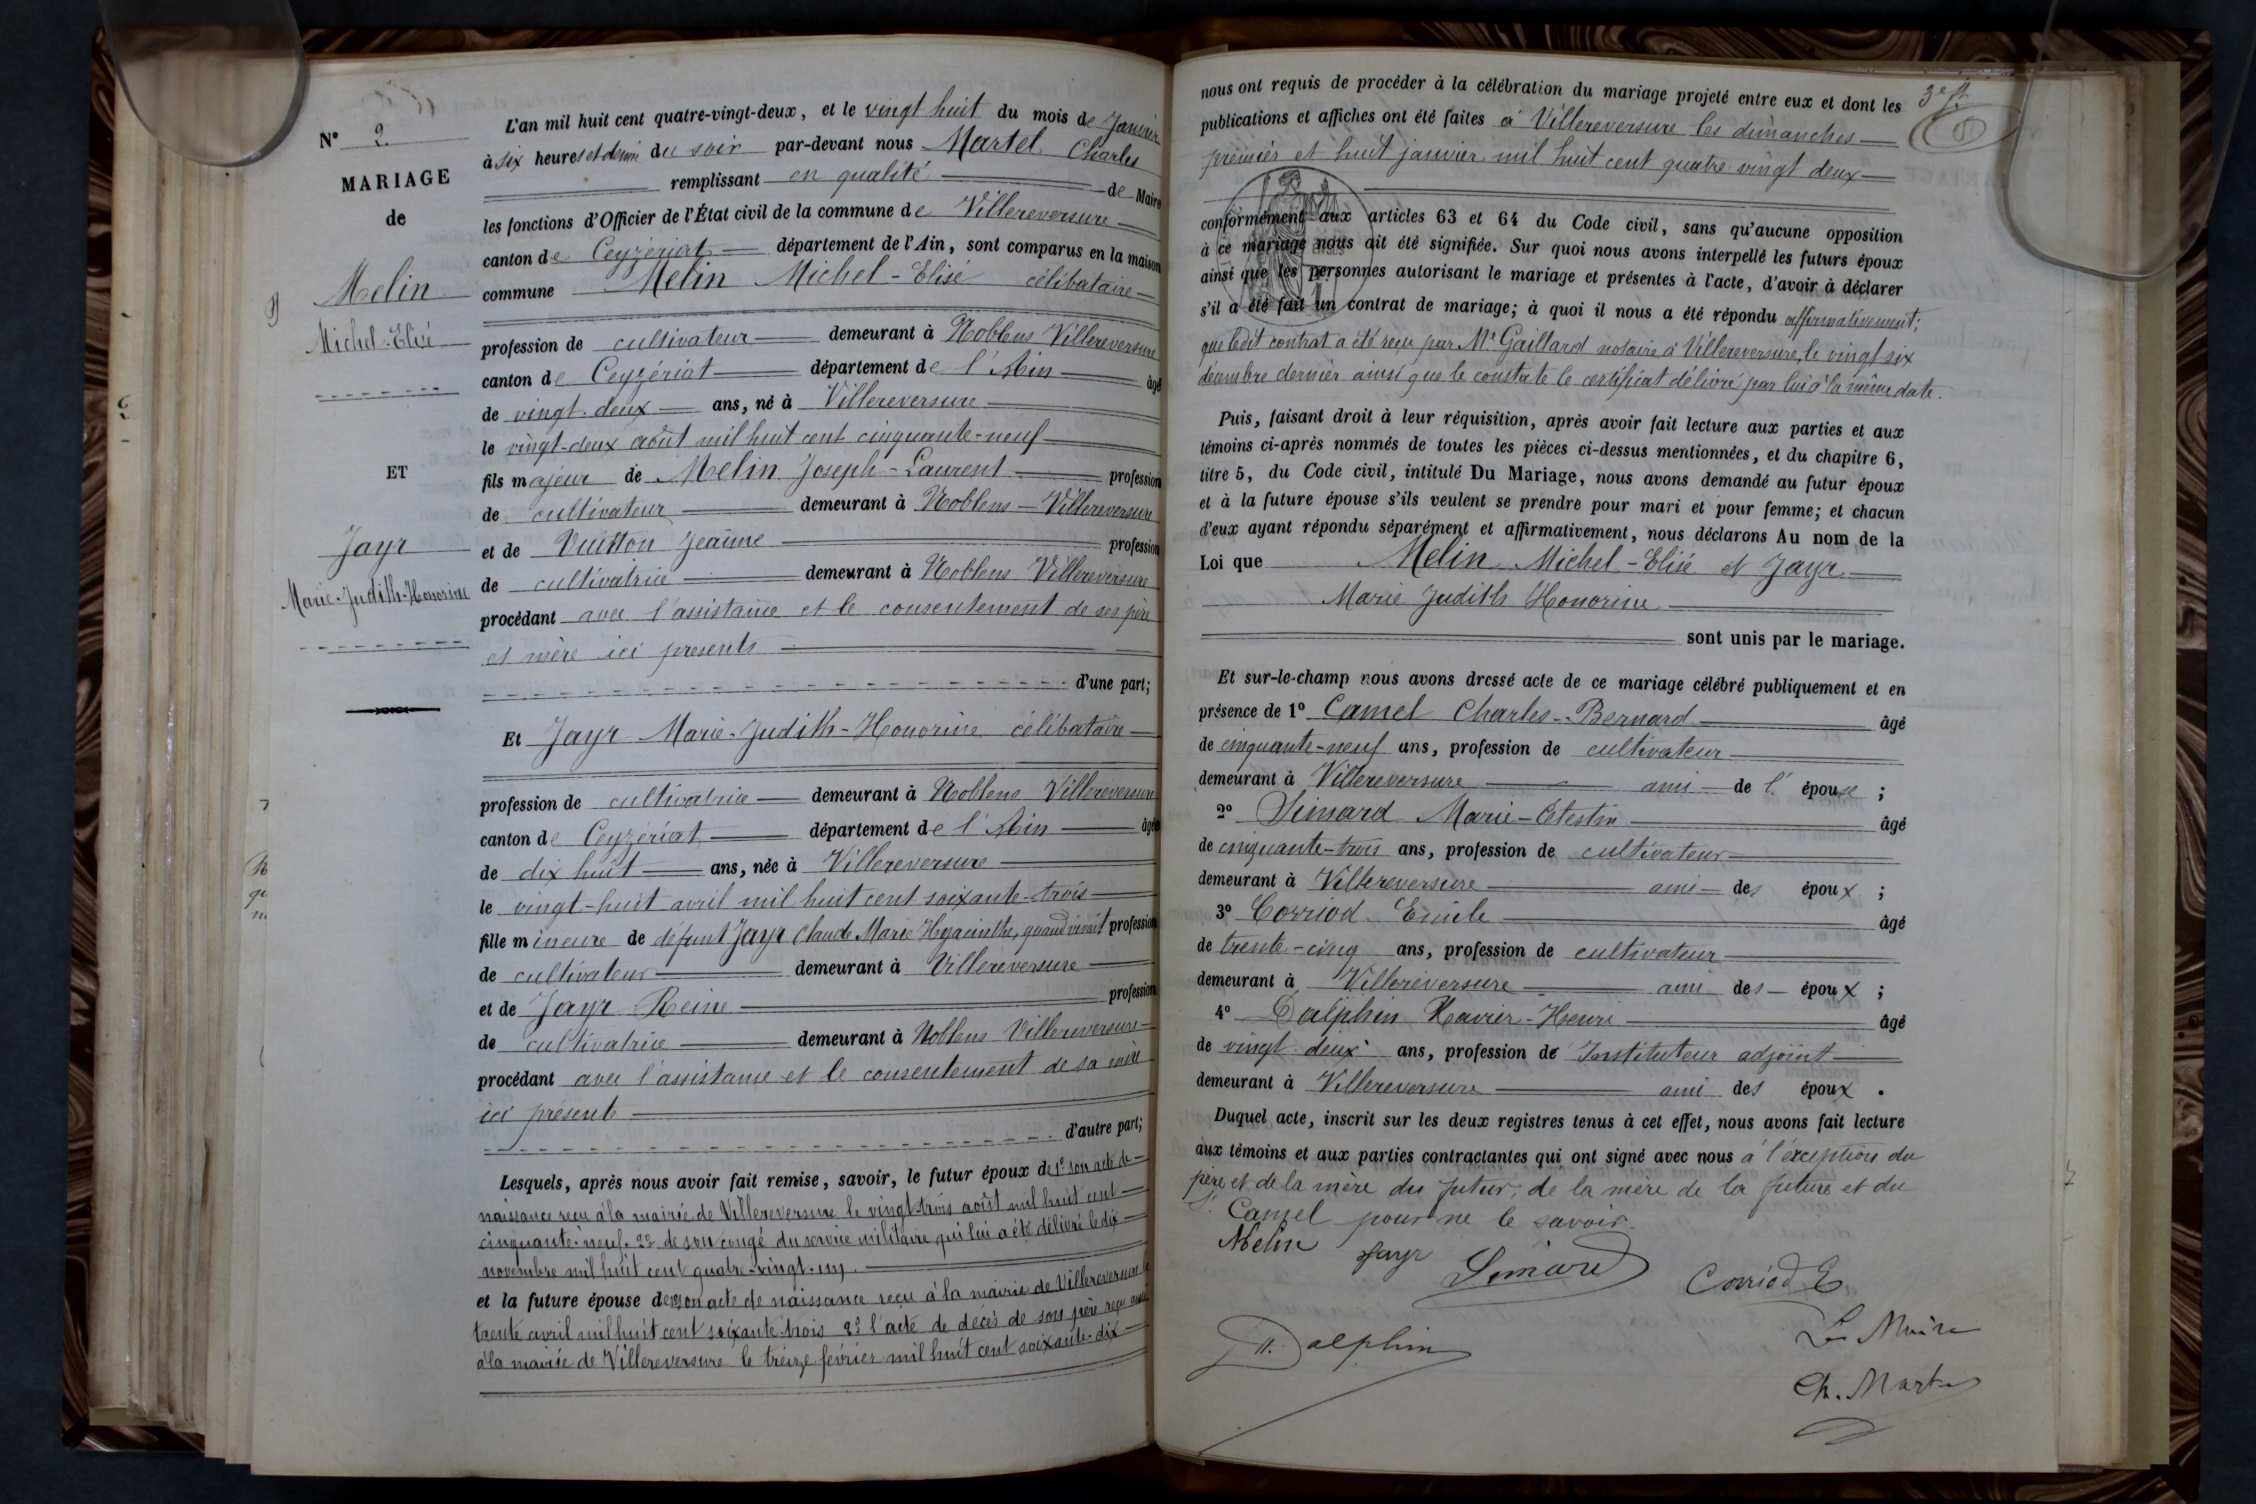 N° 2
MARIAGE
de
Melin
Michel-Elisé
ET
Jayr
Marie-Judith-Honorine
L'an mil huit cent quatre-vingt-deux, et le vingt huit du mois de Janvier
à six heures et demie du soir par-devant nous Martel Charles
remplissant en qualité de Maire
les fonctions d'Officier de l'État civil de la commune de Villereversure
canton de Ceyzériat département de l'Ain, sont comparus en la maison
commune Melin Michel-Elisé célibataire
profession de cultivateur demeurant à Noblens Villereversure
canton de Ceyzériat département de l'Ain âgé
de vingt-deux ans, né à Villereversure
le vingt-deux août mil huit cent cinquante-neuf
fils majeur de Melin Joseph-Laurent profession
de cultivateur demeurant à Noblens-Villereversure
et de Vuitton Jeanne profession
de cultivatrice demeurant à Noblens Villereversure
procédant avec l'assistance et le consentement de ses père
et mère ici présents
d'une part;
Et Jayr Marie-Judith-Honorine célibataire
profession de cultivatrice demeurant à Noblens Villereversure
canton de Ceyzériat département de l'Ain âgée
de dix huit ans, née à Villereversure
le vingt-huit avril mil huit cent soixante-trois
fille mineure de défunt Jayr Claude Marie Hyacinthe, quand vivait profession
de cultivateur demeurant à Villereversure
et de Jayr Reine profession
de cultivatrice demeurant à Noblens Villereversure
procédant avec l'assistance et le consentement de sa mère
ici présente
d'autre part;
Lesquels, après nous avoir fait remise, savoir, le futur époux de 1° son acte de
naissance reçu à la mairie de Villereversure le vingt-trois août mil huit cent
cinquante-neuf. 2° de son congé du service militaire qui lui a été délivré le dix
novembre mil huit cent quatre-vingt-un.
et la future épouse de 1° son acte de naissance reçu à la mairie de Villereversure le
trente avril mil huit cent soixante-trois 2° l'acte de décès de son père reçu aussi
à la mairie de Villereversure le treize février mil huit cent soixante-dix
nous ont requis de procéder à la célébration du mariage projeté entre eux et dont les
publications et affiches ont été faites à Villereversure les dimanches
premier et huit janvier mil huit cent quatre vingt deux
conformément aux articles 63 et 64 du Code civil, sans qu'aucune opposition
à ce mariage nous ait été signifiée. Sur quoi nous avons interpellé les futurs époux
ainsi que les personnes autorisant le mariage et présentes à l'acte, d'avoir à déclarer
s'il a été fait un contrat de mariage; à quoi il nous a été répondu affirmativement;
que ledit contrat a été reçu par Me Gaillard notaire à Villereversure, le vingt six
décembre dernier ainsi que le constate le certificat délivré par lui à la même date.
Puis, faisant droit à leur réquisition, après avoir fait lecture aux parties et aux
témoins ci-après nommés de toutes les pièces ci-dessus mentionnées, et du chapitre 6,
titre 5, du Code civil, intitulé Du Mariage, nous avons demandé au futur époux
et à la future épouse s'ils veulent se prendre pour mari et pour femme; et chacun
d'eux ayant répondu séparément et affirmativement, nous déclarons Au nom de la
Loi que Melin Michel-Elisé et Jayr
Marie Judith Honorine
sont unis par le mariage.
Et sur-le-champ nous avons dressé acte de ce mariage célébré publiquement et en
présence de 1° Camel Charles-Bernard âgé
de cinquante-neuf ans, profession de cultivateur
demeurant à Villereversure ami de l'épouse ;
2° Simard Marie-Celestin âgé
de cinquante-trois ans, profession de cultivateur
demeurant à Villereversure ami des époux ;
3° Corriod Emile âgé
de trente-cinq ans, profession de cultivateur
demeurant à Villereversure ami des époux ;
4° Dalphin Xavier-Henri âgé
de vingt deux ans, profession de Instituteur adjoint
demeurant à Villereversure ami des époux .
Duquel acte, inscrit sur les deux registres tenus à cet effet, nous avons fait lecture
aux témoins et aux parties contractantes qui ont signé avec nous à l'exception du
père et de la mère du futur, de la mère de la future et du
Sr Camel pour ne le savoir.
Melin Jayr Simard Corriod E
H. Dalphin
Le Maire
Ch. Martel